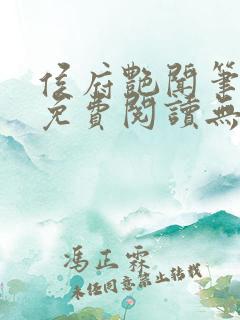 侯府艷聞筆
免費閱讀無
馮正霖
未經同意禁止轉載